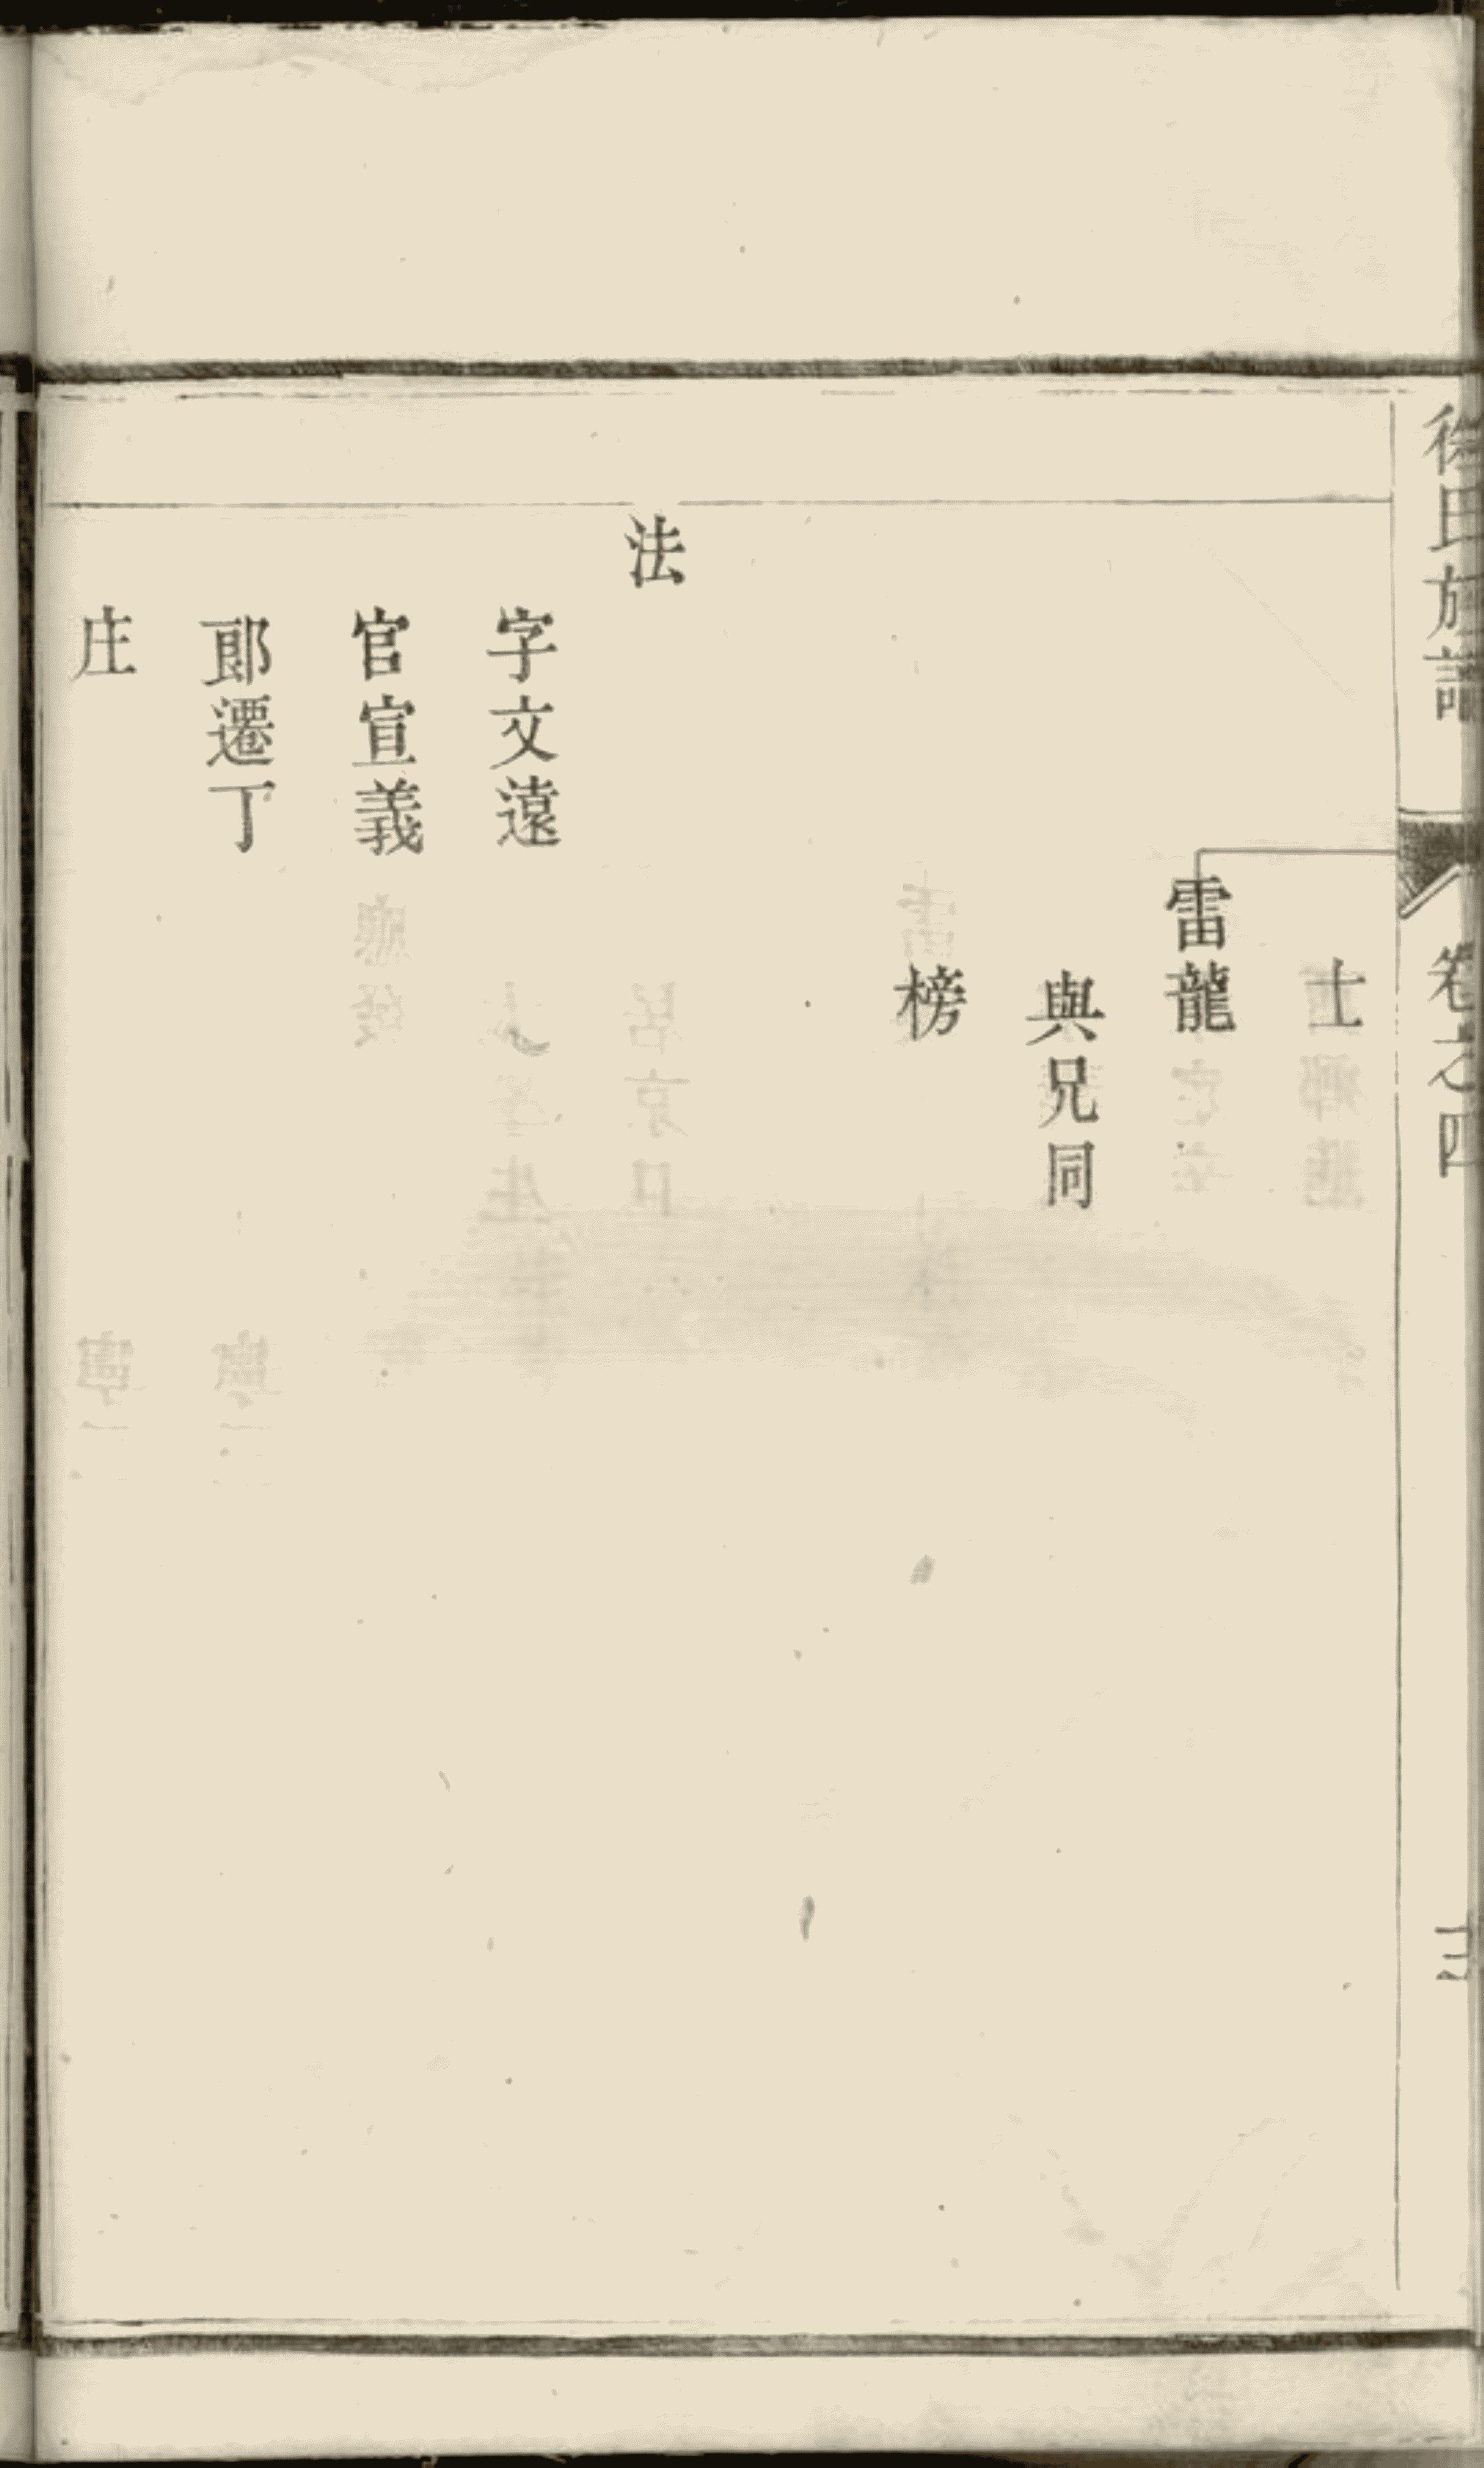 徐氏族譜
卷之四
士
雷龍
與兄同
榜
法
字文遠
官宣義
郎遷丁
庄